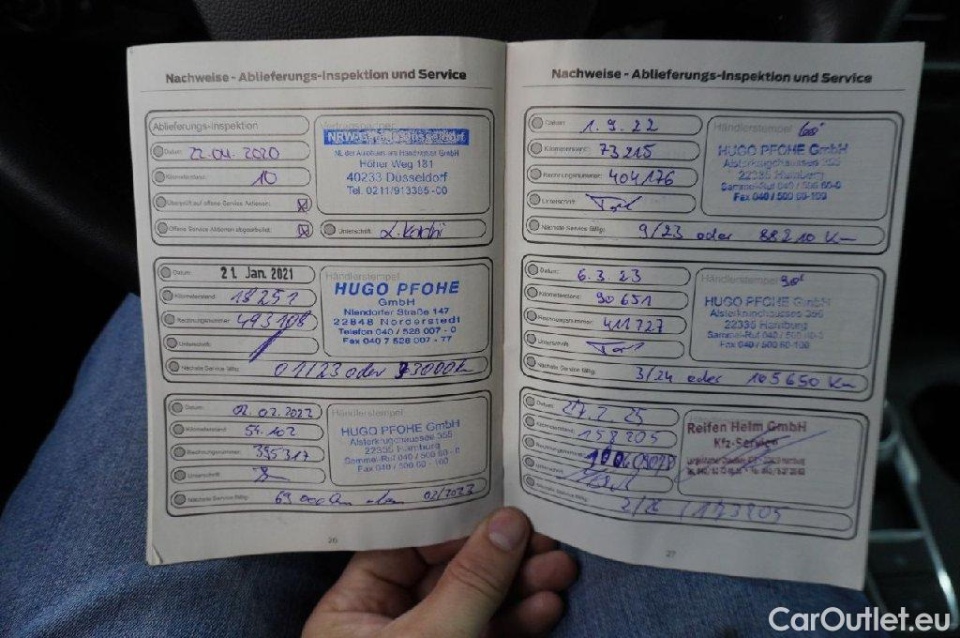 Nachweise - Ablieferungs-Inspektion und Service
Ablieferungs-Inspektion
Datum: 22.04.2020
Kilometerstand: 10
Überprüft auf offene Service Aktionen:
Offene Service Aktionen abgearbeitet:
Unterschrift:
Höher Weg 181
40233 Düsseldorf
Tel. 0211/913385-00
Datum: 21. Jan. 2021
Kilometerstand: 18251
Rechnungsnummer: 493108
Unterschrift:
Nächste Service fällig: 01/23 oder
Händlerstempel
HUGO PFOHE
GmbH
Niendorfer Straße 147
22848 Norderstedt
Telefon 040 / 528 007 - 0
Fax 040 7 528 007 - 77
Datum: 02.02.2022
Kilometerstand: 54.102
Rechnungsnummer: 395317
Unterschrift:
Nächste Service fällig:
Händlerstempel
HUGO PFOHE GmbH
Alsterkrugchaussee 355
22335 Hamburg
Fax 040 / 500 60 - 100
26
Nachweise - Ablieferungs-Inspektion und Service
Datum: 1.9.22
Kilometerstand: 73215
Rechnungsnummer: 404176
Unterschrift:
Nächste Service fällig: 9/23 oder 88210 Km
Händlerstempel
HUGO PFOHE GmbH
Alsterkrugchaussee 355
22335 Hamburg
Sammel-Ruf 040 / 500 60-0
Fax 040 / 500 60-100
Datum: 6.3.23
Kilometerstand: 90651
Rechnungsnummer: 411727
Unterschrift:
Nächste Service fällig: 3/24 oder 105650 Km
Händlerstempel
HUGO PFOHE GmbH
22335 Hamburg
Datum: 27.2.25
Kilometerstand: 158205
Rechnungsnummer:
Unterschrift:
Nächste Service fällig: 2/26
Reifen Helm GmbH
Kfz-Service
27
CarOutlet.eu